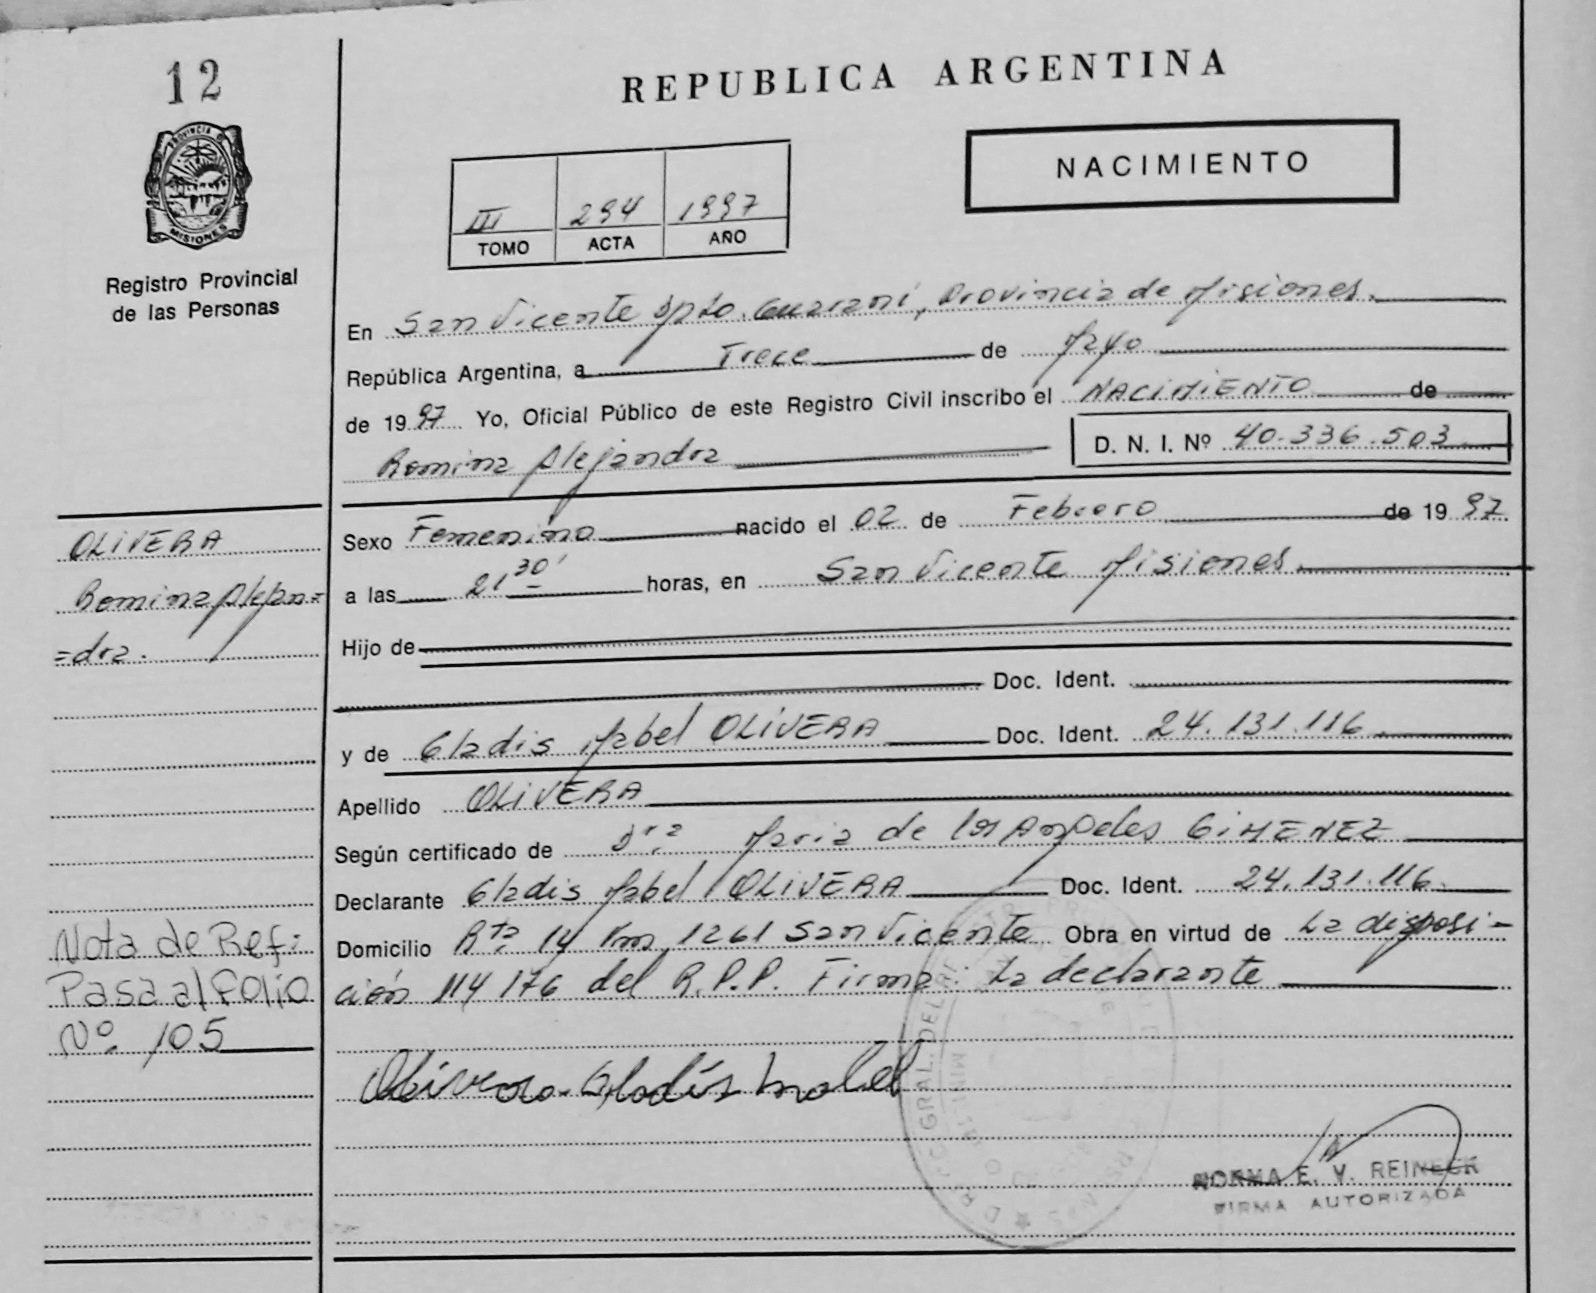 12
REPUBLICA ARGENTINA
NACIMIENTO
PROVINCIA D
MISIONES
III 294 1997
TOMO ACTA AÑO
Registro Provincial
de las Personas
En San Vicente Dpto. Guaraní, Provincia de Misiones.
República Argentina, a Trece de Mayo
de 1997 Yo, Oficial Público de este Registro Civil inscribo el NACIMIENTO de
Romina Alejandra D. N. I. Nº 40.336.503
OLIVERA
Romina Alejan=
=dra.
Sexo Femenino nacido el 02 de Febrero de 1997
a las 21 30' horas, en San Vicente Misiones
Hijo de
Doc. Ident.
y de Gladis Mabel OLIVERA Doc. Ident. 24.131.116
Apellido OLIVERA
Según certificado de Dra. Maria de los Angeles GIMENEZ
Declarante Gladis Mabel OLIVERA Doc. Ident. 24.131.116.
Domicilio Rta 14 Km 1261 San Vicente Obra en virtud de La disposi-
ción 114/76 del R.P.P. Firma: La declarante
Nota de Ref:
Pasa al Folio
Nº. 105
Olivera Gladis Mabel
NORMA E. V. REINECK
FIRMA AUTORIZADA